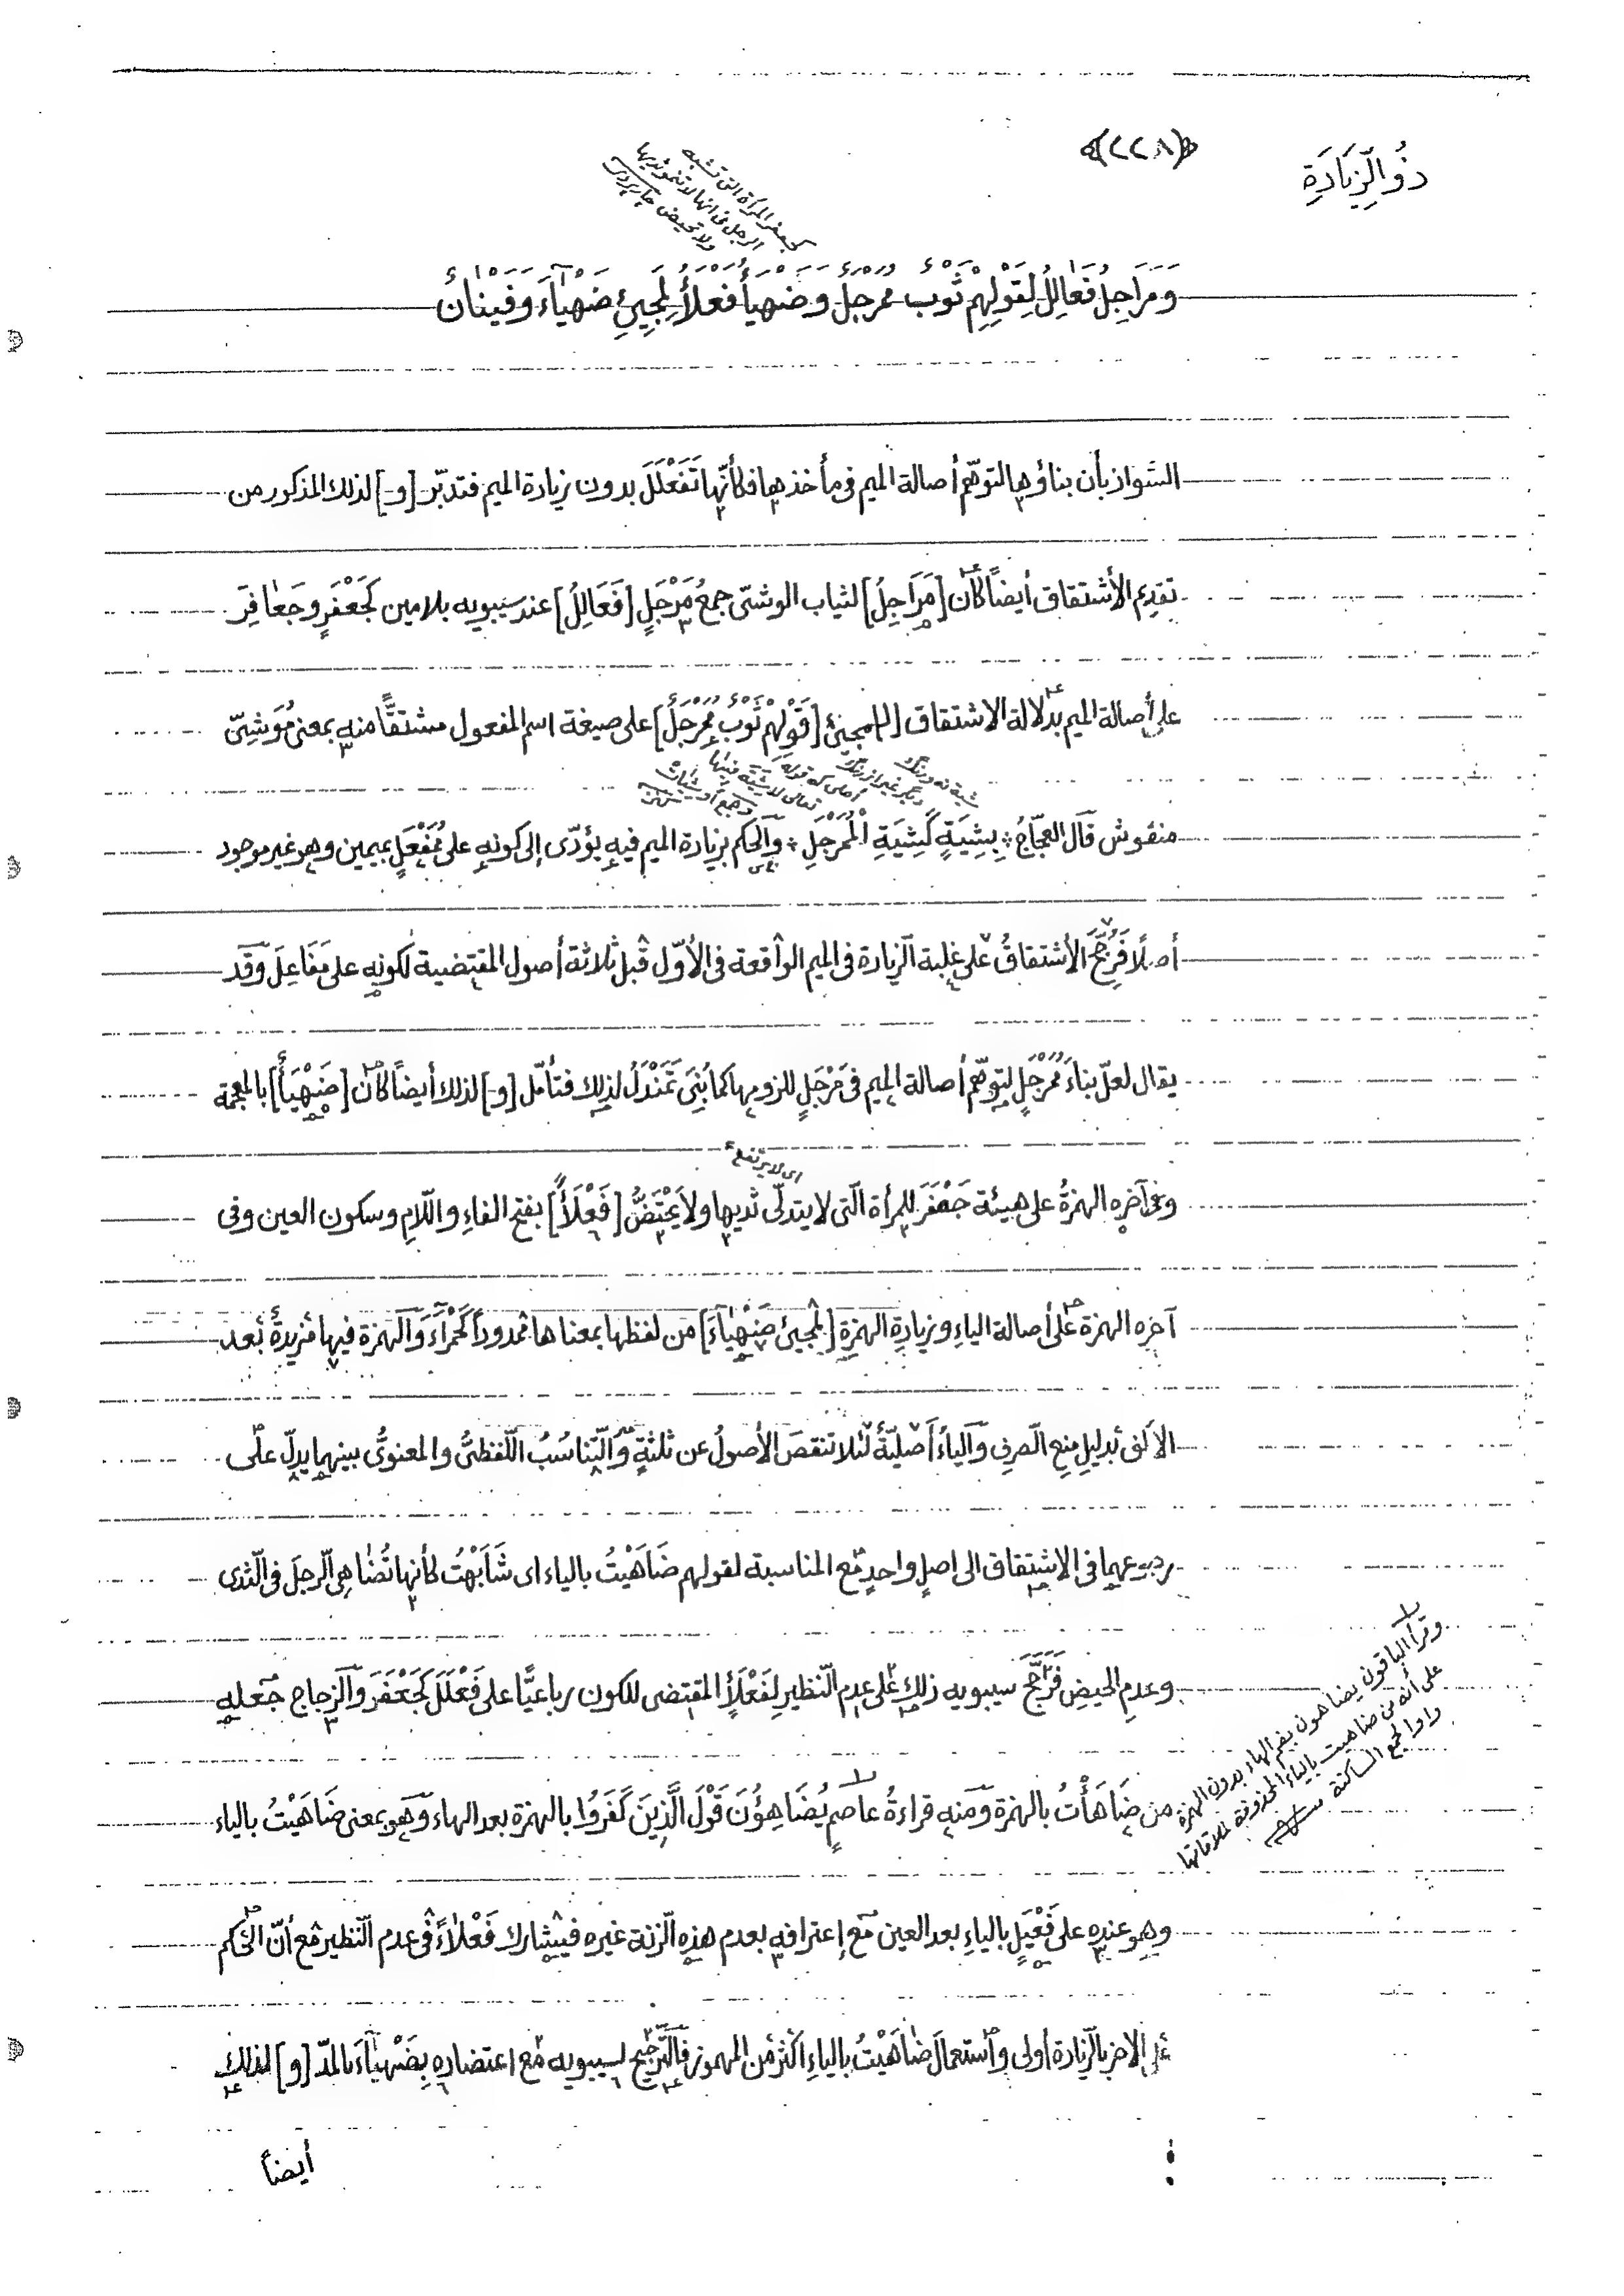 ذُو الزِّيَادَةِ
﴿٢٢٨﴾
كجعفر المرأة التى تشبه
الرجل فى انها لا تنمو ثديها
ولا تحيض جاربردى
وَمَرَاجِلُ فَعَالِلُ لِقَوْلِهِمْ ثَوْبٌ مُمَرْجَلٌ وَضَهْيَأٌ فَعْلَأٌ لِمَجِيئِ ضَهْيَاءَ وَفَيْنَانٌ
الشواذ بأن بناؤها لتوهّم أصالة الميم فى مأخذها فكأنّها تَفَعْلَلَ بدون زيادة الميم فتدبّر [و] لذلك المذكور من
تقديم الأشتقاق أيضاً كان [مَرَاجِلُ] لثياب الوشىّ جمعُ مَرْجَلٍ [فَعَالِلُ] عند سيبويه بلامين كَجَعْفَرٍ وجَعَافِرَ
على أصالة الميم بدلالة الاشتقاق [لمجيئ] [قَوْلِهِمْ ثَوْبٌ مُمَرْجَلٌ] على صيغة اسم المفعول مشتقًّا منه بمعنى مُوَشّىً
تعالى لا شِيَةَ فيها
منقوش قال العجّاجُ ؛ بِشِيَةٍ كَشِيَةِ الْمُمَرْجَلِ ؛ والحكم بزيادة الميم فيه يؤدّى إلى كونه على مُمَفْعَلٍ بميمين وهو غير موجود
أصلًا فَرُجِّحَ الأشتقاقُ على غلبة الزيادة فى الميم الواقعة فى الأوّل قبل ثلاثة أصول المقتضية لكونه على مَفَاعِلَ وقد
يقال لعلّ بناءَ مُمَرْجَلٍ لتوهّم أصالة الميم فى مَرْجَلٍ للزومها كما بُنِىَ تَمَنْدَلَ لذلك فتأمّل [و] لذلك أيضاً كان [ضَهْيَأٌ] بالمعجمة
اى لا يرتفع
وفى آخره الهمزةُ على هيئة جَعْفَرَ للمرأة الّتى لا يتدلّى ثديها ولا يَحْتَضُّ [فَعْلَأً] بفتح الفاءِ واللّامِ وسكون العين وفى
آخره الهمزة على أصالة الياءِ وزيادة الهمزة [لمجيئ ضَهْيَاءَ] من لفظها بمعناها ممدوداً كَحَمْرَآءَ والهمزة فيها مزيدةٌ بعد
الألف بدليل منع الصرف والياءُ أَصليّةٌ لئلا تنقصَ الأصولُ عن ثلثةٍ والتّناسُبُ اللّفظىُّ والمعنوىُّ بينهما يدلّ على
رجوعهما فى الاشتقاق الى اصلٍ واحدٍ مع المناسبة لقولهم ضَاهَيْتُ بالياء اى شَابَهْتُ كأنها تُضَاهِى الرجلَ فى الثّدى
وعدمِ الحيضِ فَرَجَّحَ سيبويه ذلك على عدم النّظير لِفَعْلَأٍ المقتضى للكون رباعيًّا على فَعْلَلَ كَجَعْفَرَ والزجاج جعله
من ضَاهَأْتُ بالهمزة ومنه قراءةُ عاصمٍ يُضَاهِؤُنَ قَوْلَ الَّذِينَ كَفَرُوا بالهمزة بعد الهاء وهو بمعنى ضَاهَيْتُ بالياء
وقرأ الباقون يضاهون بضم الهاء بدون الهمزة
على أنه من ضاهيت بالياء المحذوفة لملاقاتها
واو الجمع الساكنة
وهو عنده على فَعْيَلٍ بالياءِ بعد العين مع إعترافه بعدم هذه الزنة غيره فيشارك فَعْلَأً فى عدم النّظير مع أنّ الحكم
على الاخر بالزيادة أولى وأستعمالَ ضاهَيْتُ بالياءِ أكثر من المهموز فالترجيح لسيبويه مع اعتضاده بِضَهْيَآءَ بالمدّ [و] لذلك
أيضاً